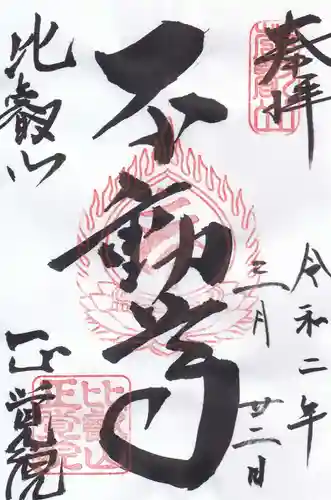 奉拝
令和二年
三月廿二日
不動尊
比叡山
正覚院
比叡山
正覚院